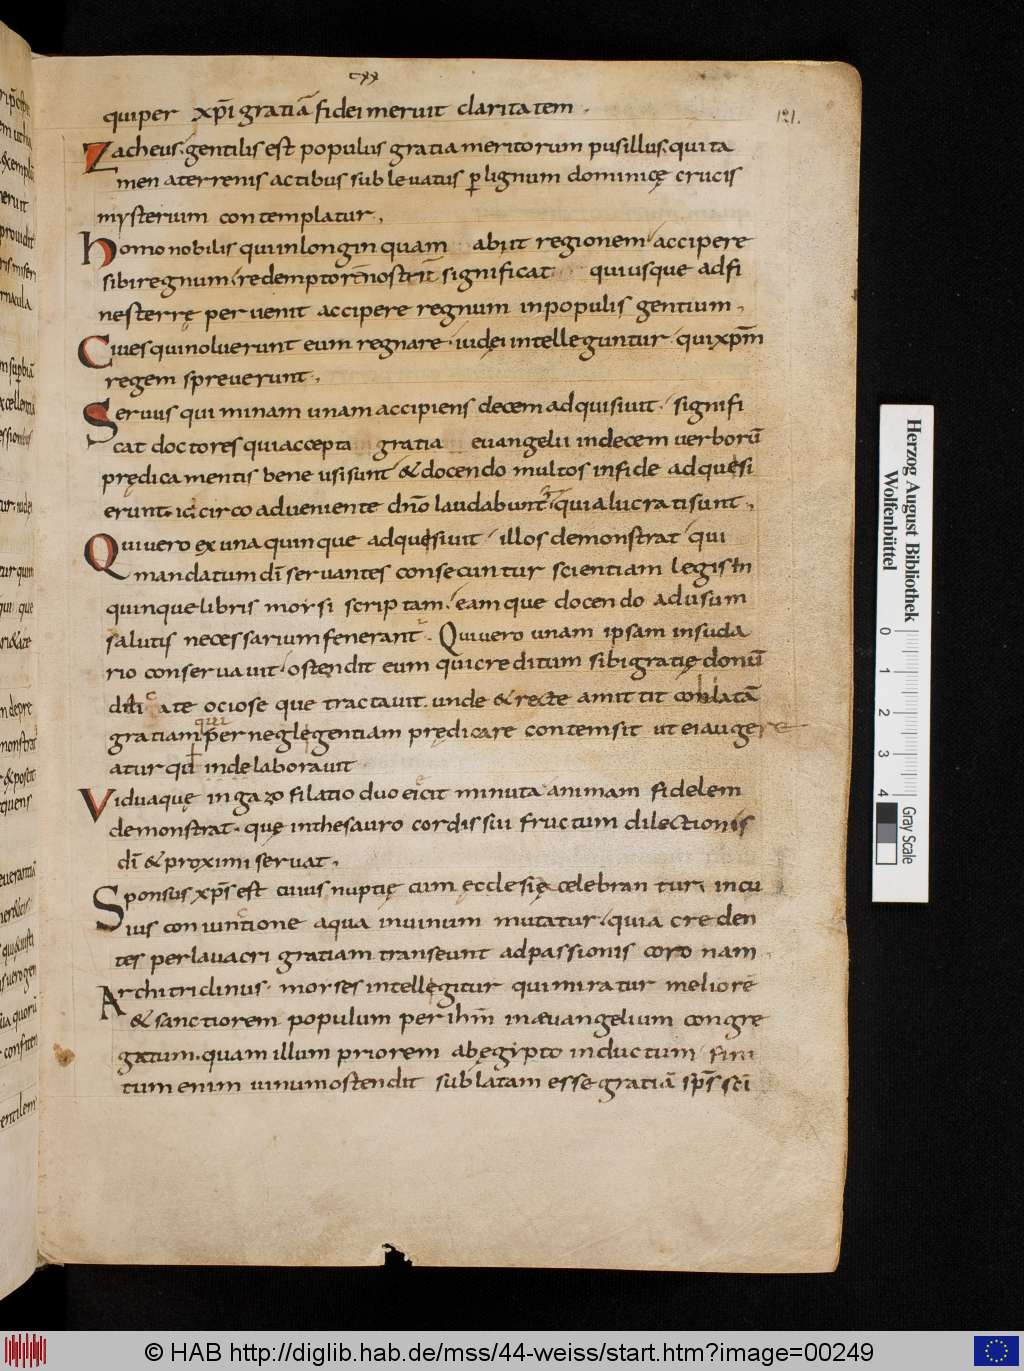 cxx
121.
qui per xp̄i gratiā fidei meruit claritatem.
Zacheus. gentilis est populus gratia meritorum pusillus. qui ta
men a terrenis actibus sublevatus ꝑ lignum dominicę crucis
mysterium contemplatur,
Homo nobilis qui in longinquam abiit regionem accipere
sibi regnum, redemptorē nostrū significat qui usque ad fi
nes terrę pervenit accipere regnum in populis gentium,
Cives qui noluerunt eum regnare, iudęi intelleguntur, qui xp̄m
regem spreverunt,
Servus qui minam unam accipiens decem adquisivit, signifi
cat doctores qui accepta gratia evangelii in decem verborū
prędicamentis bene usi sunt & docendo multos in fide adquesi
erunt. idcirco adveniente dn̄o laudabunt, quia lucrati sunt,
Qui vero ex una quinque adquesivit, illos demonstrat qui
mandatum dī servantes consecuntur scientiam legis in
quinque libris morsi scriptam, eamque docendo ad usum
salutis necessarium fenerant. Qui vero unam ipsam in suda
rio conservavit, ostendit eum qui creditum sibi gratię donū
ate ociose que tractavit. unde & recte amittit conlatā
gratiam per neglegentiam prędicare contemsit ut ei augere
atur qui inde laboravit
Vidua quę in gazofilatio duo eicit minuta animam fidelem
demonstrat. quę in thesauro cordis sui fructum dilectionis
dī & proximi servat,
Sponsus xp̄s est cuius nuptię cum ecclesię celebrantur, in cu
ius coniunctione aqua in vinum mutatur, quia creden
tes per lavacri gratiam transeunt ad passionis coronam.
Architriclinus. morses intellegitur qui miratur meliorē
& sanctiorem populum per ihm̄ in ævangelium congre
gatum. quam illum priorem ab ęgypto inductum, fini
tum enim vinum ostendit sublatam esse gratiā sp̄s sc̄i
Herzog August Bibliothek
Wolfenbüttel
0 1 2 3 4
Gray Scale
© HAB http://diglib.hab.de/mss/44-weiss/start.htm?image=00249